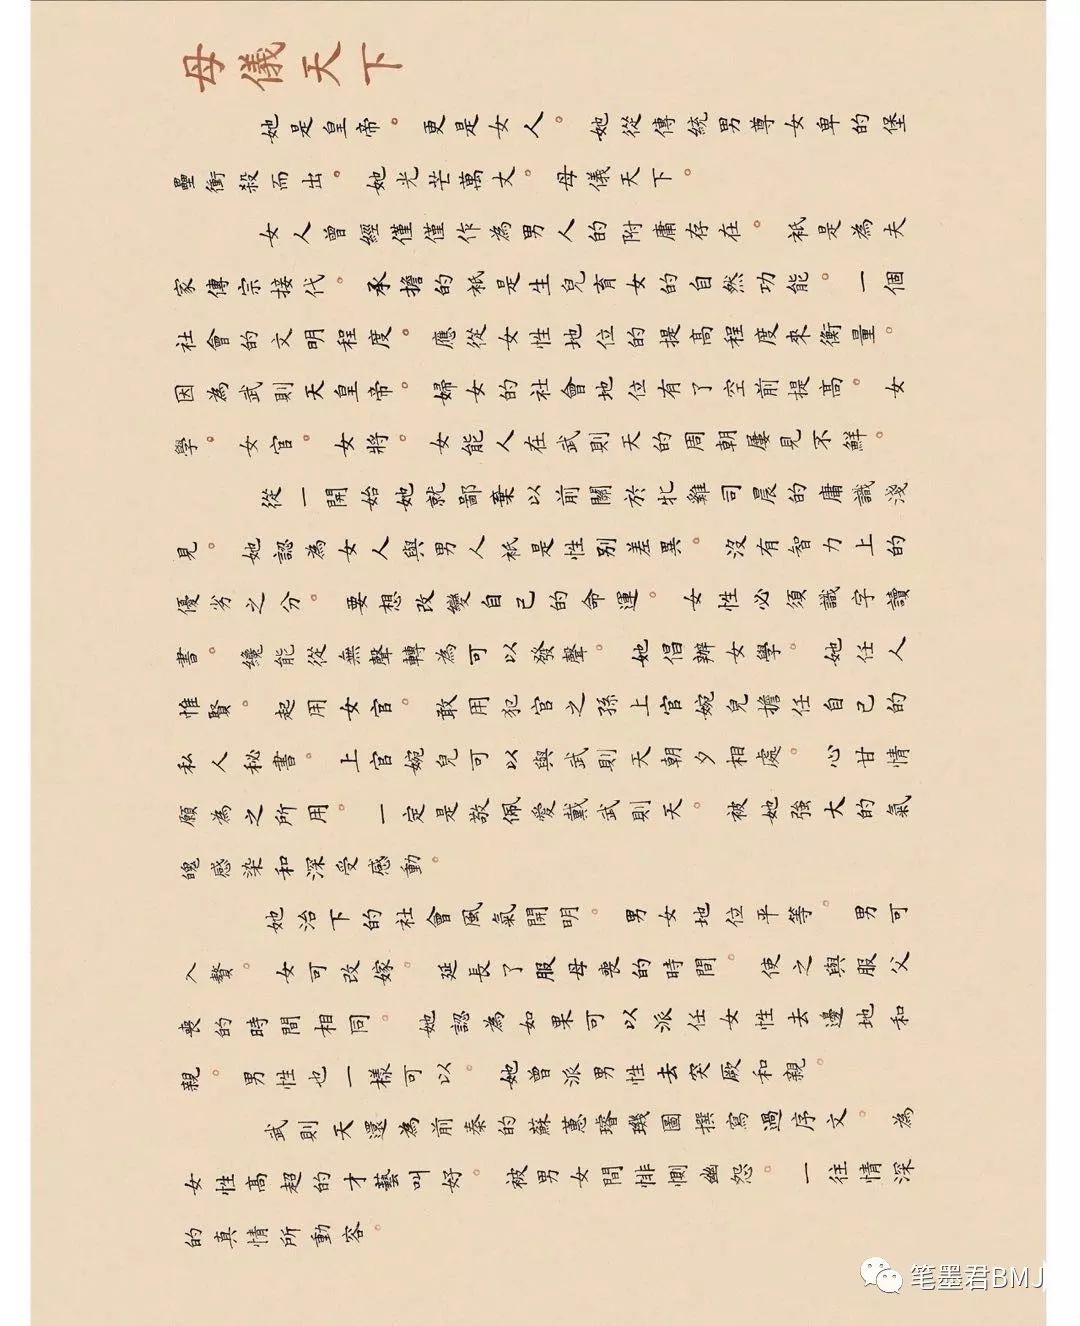 母儀天下
她是皇帝。更是女人。她從傳統男尊女卑的堡
壘衝殺而出。她光芒萬丈。母儀天下。
女人曾經僅僅作為男人的附庸存在。衹是為夫
家傳宗接代。承擔的衹是生兒育女的自然功能。一個
社會的文明程度。應從女性地位的提高程度來衡量。
因為武則天皇帝。婦女的社會地位有了空前提高。女
學。女官。女將。女能人在武則天的周朝屢見不鮮。
從一開始她就鄙棄以前關於牝雞司晨的庸識淺
見。她認為女人與男人衹是性別差異。沒有智力上的
優劣之分。要想改變自己的命運。女性必須識字讀
書。纔能從無聲轉為可以發聲。她倡辦女學。她任人
惟賢。起用女官。敢用犯官之孫上官婉兒擔任自己的
私人秘書。上官婉兒可以與武則天朝夕相處。心甘情
願為之所用。一定是敬佩愛戴武則天。被她強大的氣
魄感染和深受感動。
她治下的社會風氣開明。男女地位平等。男可
入贅。女可改嫁。延長了服母喪的時間。使之與服父
喪的時間相同。她認為如果可以派任女性去邊地和
親。男性也一樣可以。她曾派男性去突厥和親。
武則天還為前秦的蘇蕙璿璣圖撰寫過序文。為
女性高超的才藝叫好。被男女間悱惻幽怨。一往情深
的真情所動容。
笔墨君BMJ